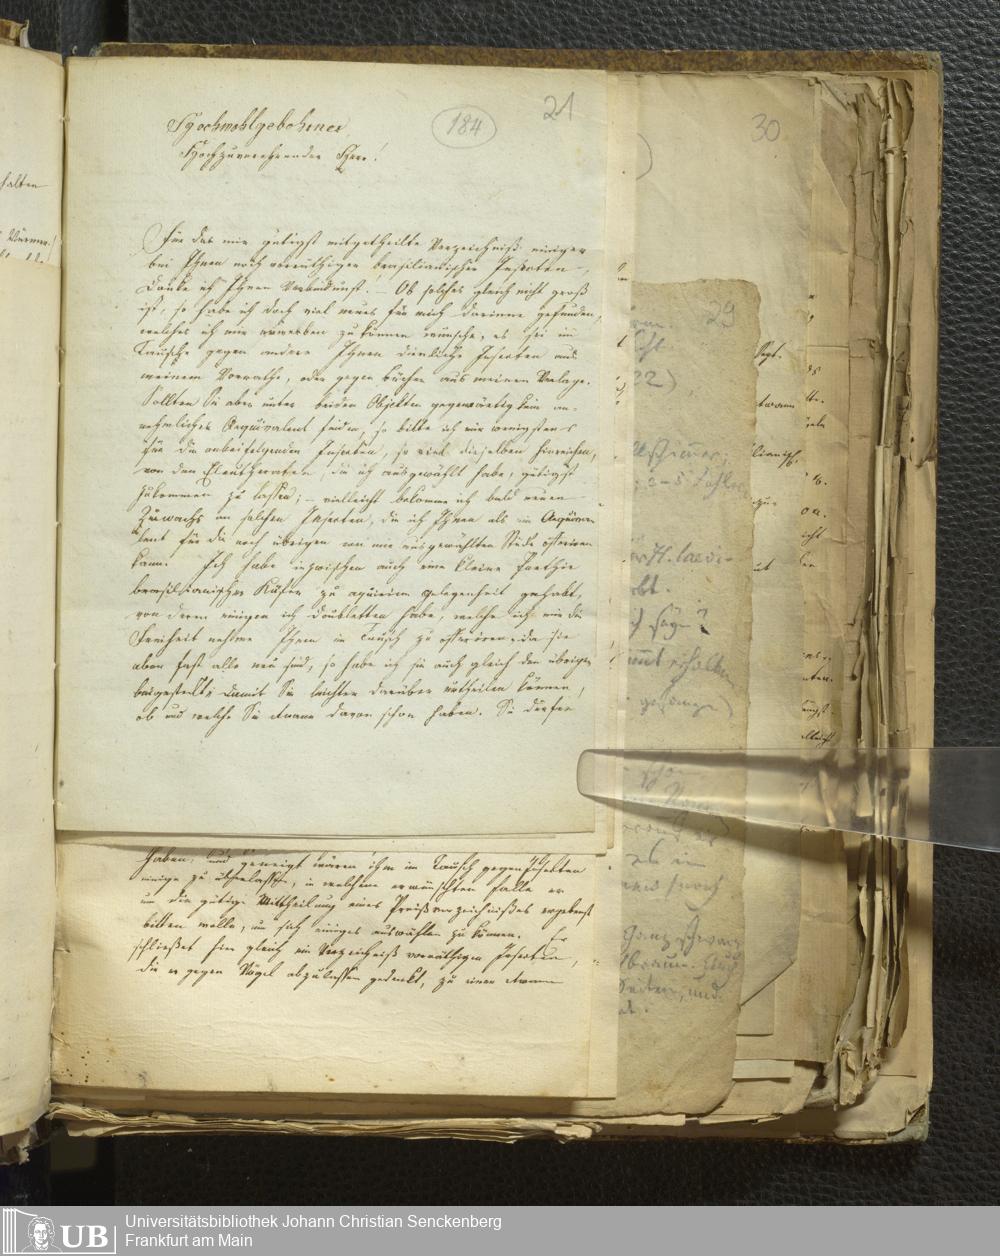 halten
184
21
30
29
Hochwohlgebohrner
Hochzuverehrender Herr!
Für das mir gütigst mitgetheilte Verzeichniß einiger
bei Ihnen noch vorräthigen brasilianischen Insecten,
danke ich Ihnen verbindlichst! – Ob solches gleich nicht groß
ist, so habe ich doch viel neues für mich darinne gefunden,
welches ich mir erwerben zu können wünsche, es sei im
Tausche gegen andere Ihnen dienliche Insecten aus
meinem Vorrathe, oder gegen bücher aus meinem Verlage.
Sollten Sie aber unter beiden Objekten gegenwärtig kein an-
nehmliches Aequivalent finden, so bitte ich mir wenigstens
für die anbeifolgenden Insecten, so viel dieselben hinreichen,
von den Eleutheraten, die ich ausgewählt habe, gütigst
zukommen zu lassen; – vielleicht bekomme ich bald neuen
Zuwachs an solchen Insecten, die ich Ihnen als ein Aequiva-
lent für die noch übrigen von mir ausgewählten Stücke offeriren
kann. Ich habe inzwischen auch eine kleine Parthie
brasilianischer Käfer zu aquiriren gelegenheit gehabt,
von denen einigen ich doubletten habe, welche ich mir die
Freiheit nehme Ihnen in Tausch zu offeriren; da sie
aber fast alle neu sind, so habe ich sie auch gleich den übrigen
beigesteckt; damit Sie leichter darüber urtheilen können,
ob und welche Sie etwann davon schon haben. Sie dürfen
haben, und geneigt wären ihm im Tausch gegen Insecten
einige zu überlassen, in welchem erwünschten falle er
um die gütige Mittheilung eines Preißverzeichnißes ergebenst
bitten wolle, um sich einiges auswählen zu können. Er
schließet hier gleich ein Verzeichniß vorräthiger Insecten,
die er gegen Vögel abzulassen gedenkt, zu einer etwann
22)
H. laevi-
ganz schwarz
braun.
Seiten, und
Universitätsbibliothek Johann Christian Senckenberg
Frankfurt am Main
UB